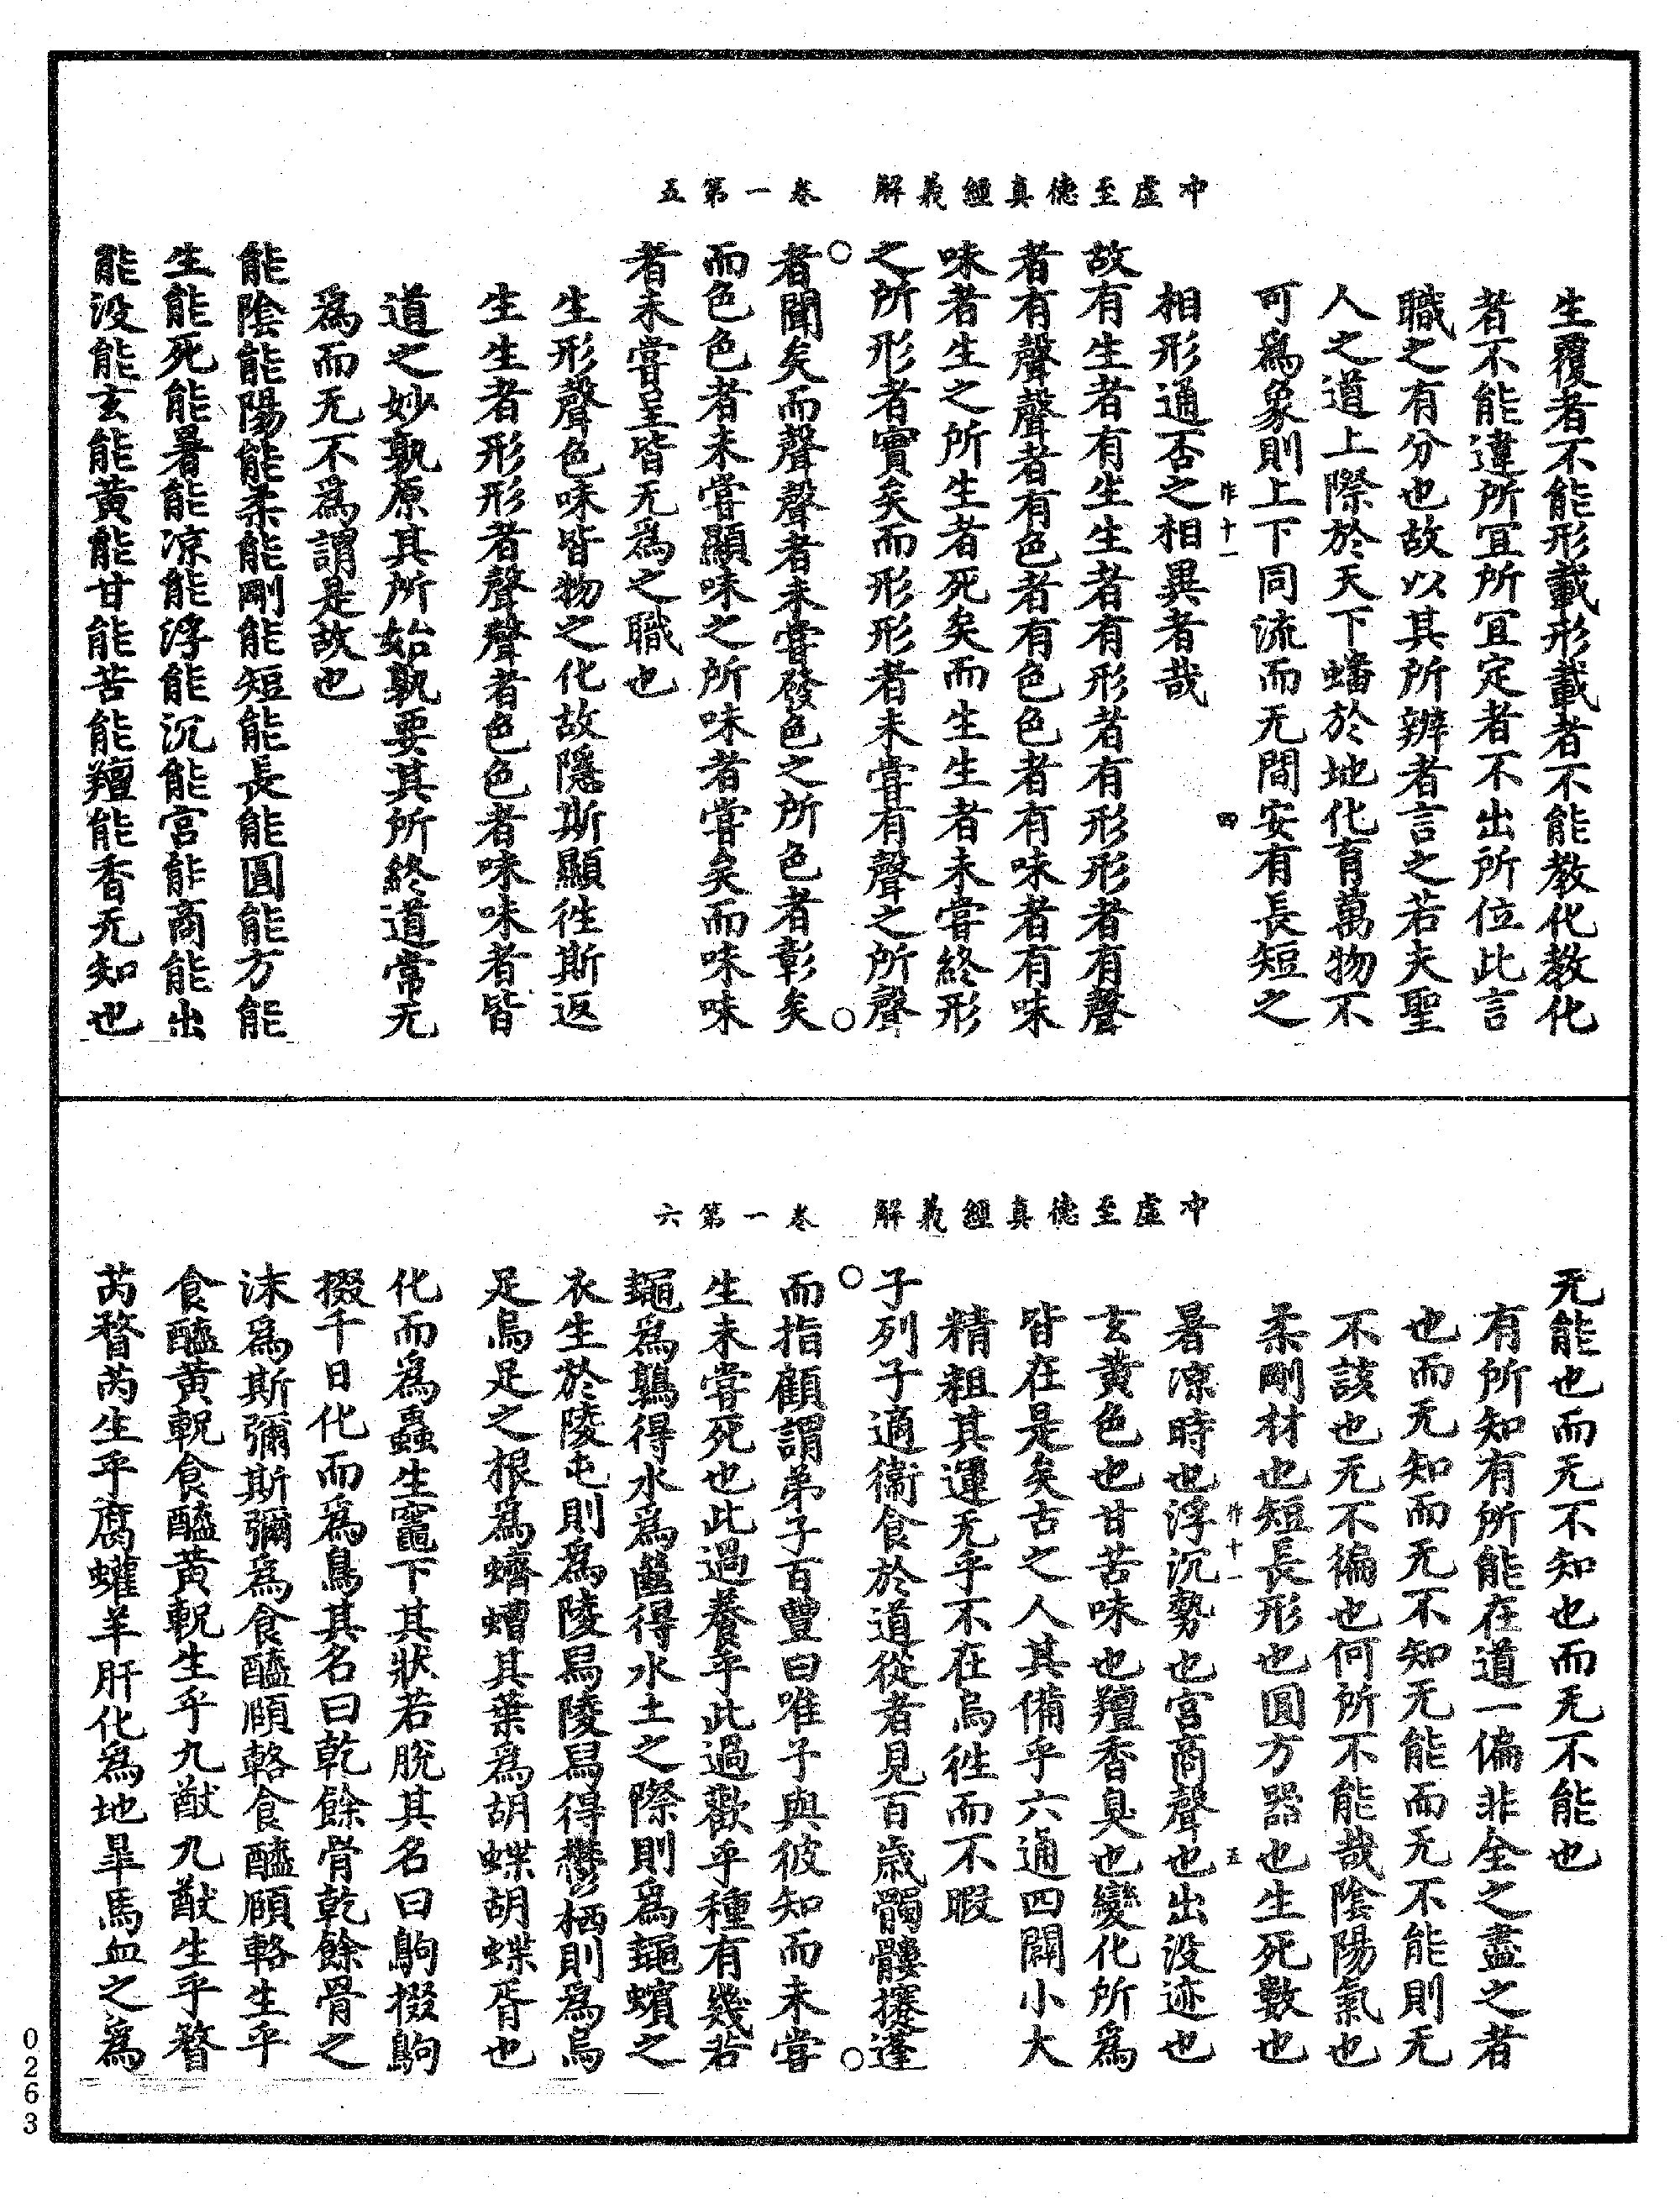 冲虛至德真經義解　卷一第五
生覆者不能形載形載者不能教化教化
者不能違所宜所宜定者不出所位此言
職之有分也故以其所辨者言之若夫聖
人之道上際於天下蟠於地化育萬物不
可爲象則上下同流而无間安有長短之
作十一　四
相形通否之相異者哉
故有生者有生生者有形者有形形者有聲
者有聲聲者有色者有色色者有味者有味
味者生之所生者死矣而生生者未嘗終形
之所形者實矣而形形者未嘗有聲之所聲
者聞矣而聲聲者未嘗發色之所色者彰矣
而色色者未嘗顯味之所味者嘗矣而味味
者未嘗呈皆无爲之職也
生形聲色味皆物之化故隱斯顯徃斯返
生生者形形者聲聲者色色者味味者皆
道之妙孰原其所始孰要其所終道常无
爲而无不爲謂是故也
能陰能陽能柔能剛能短能長能圓能方能
生能死能暑能凉能浮能沉能宮能商能出
能没能玄能黃能甘能苦能羶能香无知也
冲虛至德真經義解　卷一第六
无能也而无不知也而无不能也
有所知有所能在道一偏非全之盡之者
也而无知而无不知无能而无不能則无
不該也无不徧也何所不能哉陰陽氣也
柔剛材也短長形也圓方器也生死數也
作十一　五
暑凉時也浮沉勢也宮商聲也出没迹也
玄黃色也甘苦味也羶香臭也變化所爲
皆在是矣古之人其備乎六通四闢小大
精粗其運无乎不在烏徃而不暇
子列子適衞食於道從者見百歲髑髏攓蓬
而指顧謂弟子百豐曰唯予與彼知而未嘗
生未嘗死也此過養乎此過歡乎種有幾若
蠅爲鶉得水爲㡭得水土之際則爲蠅蠙之
衣生於陵屯則爲陵舄陵舄得鬱栖則爲烏
足烏足之根爲蠐螬其葉爲胡蝶胡蝶胥也
化而爲蟲生竈下其狀若脫其名曰鴝掇鴝
掇千日化而爲鳥其名曰乾餘骨乾餘骨之
沫爲斯彌斯彌爲食醯頤輅食醯頤輅生乎
食醯黃軦食醯黃軦生乎九猷九猷生乎瞀
芮瞀芮生乎腐蠸羊肝化爲地臯馬血之爲
0263